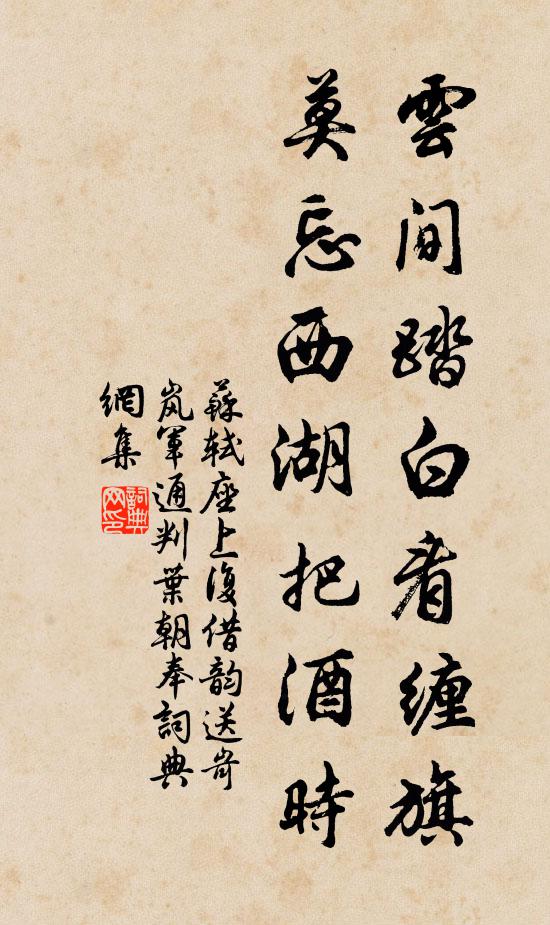 雲間踏白看纏旗
莫忘西湖把酒時
蘇軾座上復借韻送岢
嵐軍通判葉朝奉詞典
網集
詞典網印